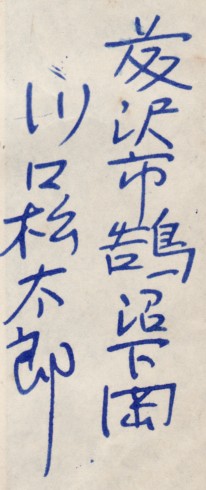 藤沢市鵠沼下岡
川口松太郎